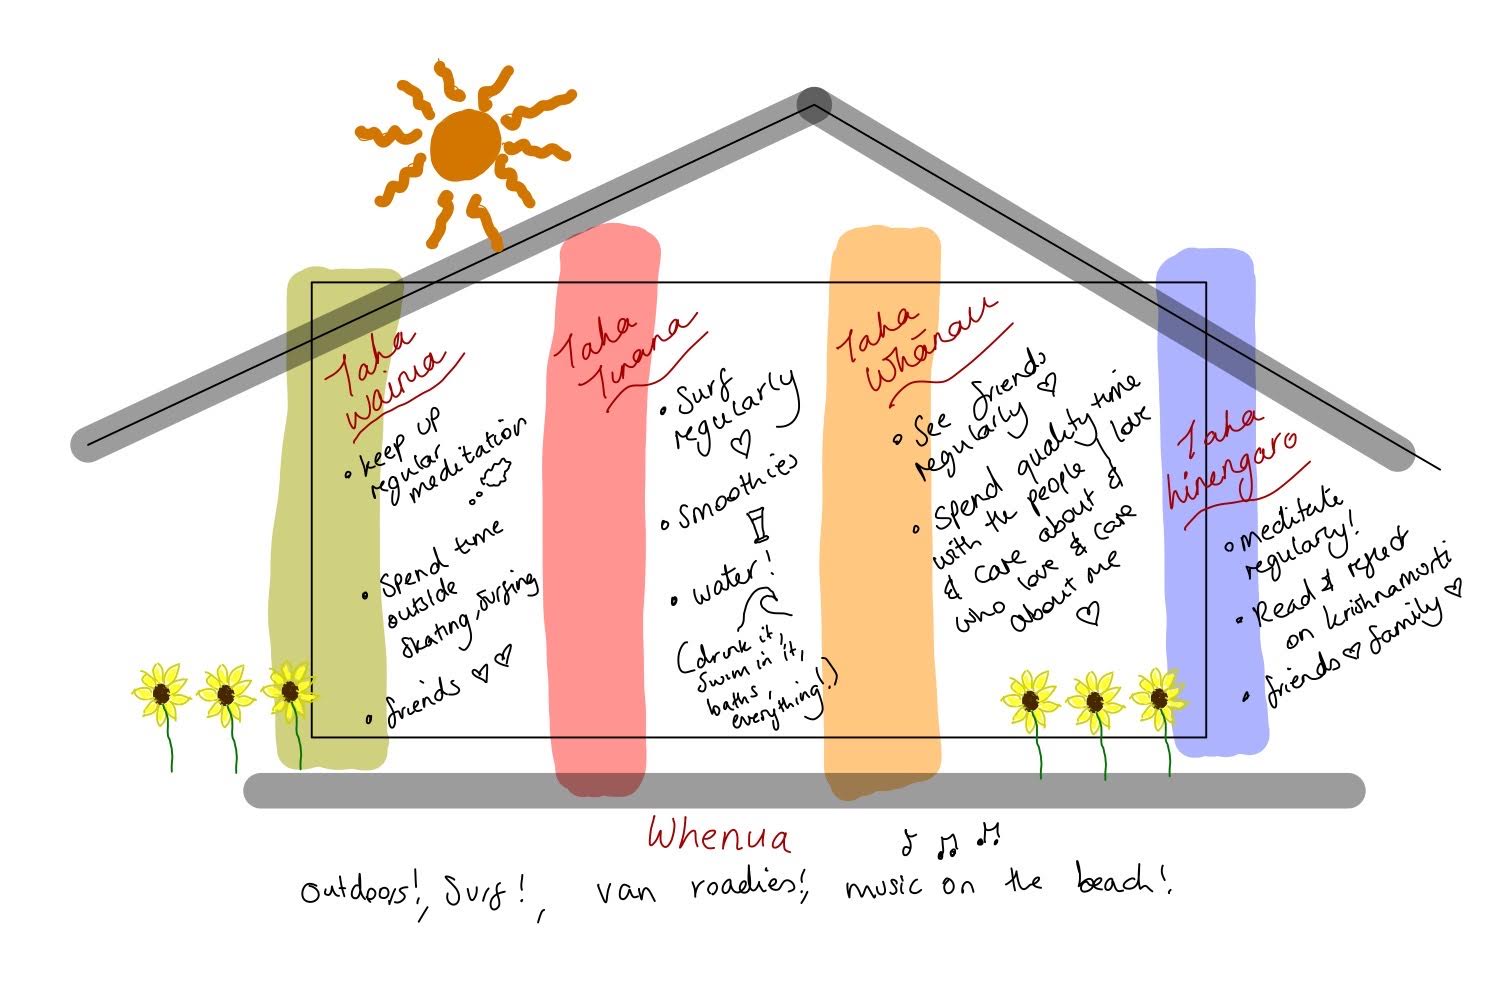 Taha
wairua
• keep up
regular
meditation
• Spend time
outside
skating, surfing
• friends
Taha
Tinana
• Surf
regularly
• Smoothies
• water!
(drink it,
swim in it,
baths,
everything!)
Taha
Whānau
• See friends
regularly
• Spend quality time
with the people I love
& care about &
who love & care
about me
Taha
hinengaro
• meditate
regularly!
• Read & reflect
on krishnamorti
• friends family
Whenua
outdoors!, Surf!, van roadies!, music on the beach!